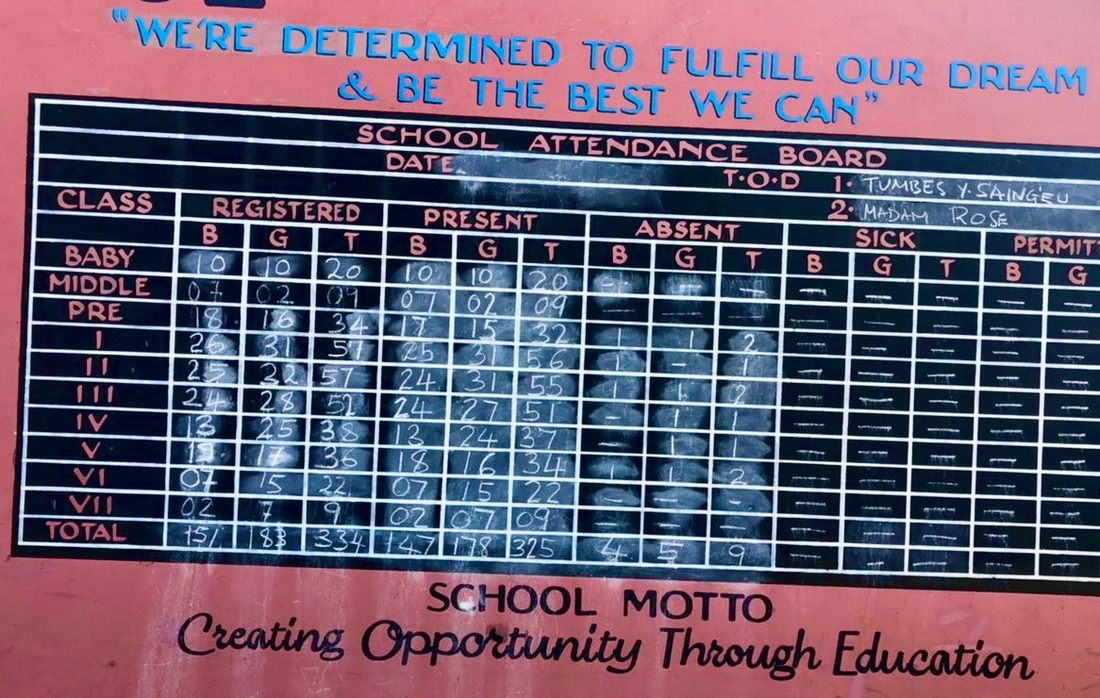 "WE'RE DETERMINED TO FULFILL OUR DREAM
& BE THE BEST WE CAN"
SCHOOL ATTENDANCE BOARD
DATE. T.O.D 1. TUMBES Y. SAING'EU
2. MADAM ROSE
CLASS REGISTERED PRESENT ABSENT SICK
B G T B G T B G T B G T B G
BABY 10 10 20 10 10 20 - - - - - - - -
MIDDLE 07 02 09 07 02 09 - - - - - - - -
PRE 18 16 34 17 15 32 1 1 2 - - - - -
I 26 31 57 25 31 56 1 - 1 - - - - -
II 25 32 57 24 31 55 1 1 2 - - - - -
III 24 28 52 24 27 51 - 1 1 - - - - -
IV 13 25 38 13 24 37 - 1 1 - - - - -
V 17 36 18 16 34 1 1 2 - - - - -
VI 07 15 22 07 15 22 - - - - - - - -
VII 02 7 9 02 07 09 - - - - - - - -
TOTAL 151 183 334 147 178 325 4 5 9 - - - - -
SCHOOL MOTTO
Creating Opportunity Through Education